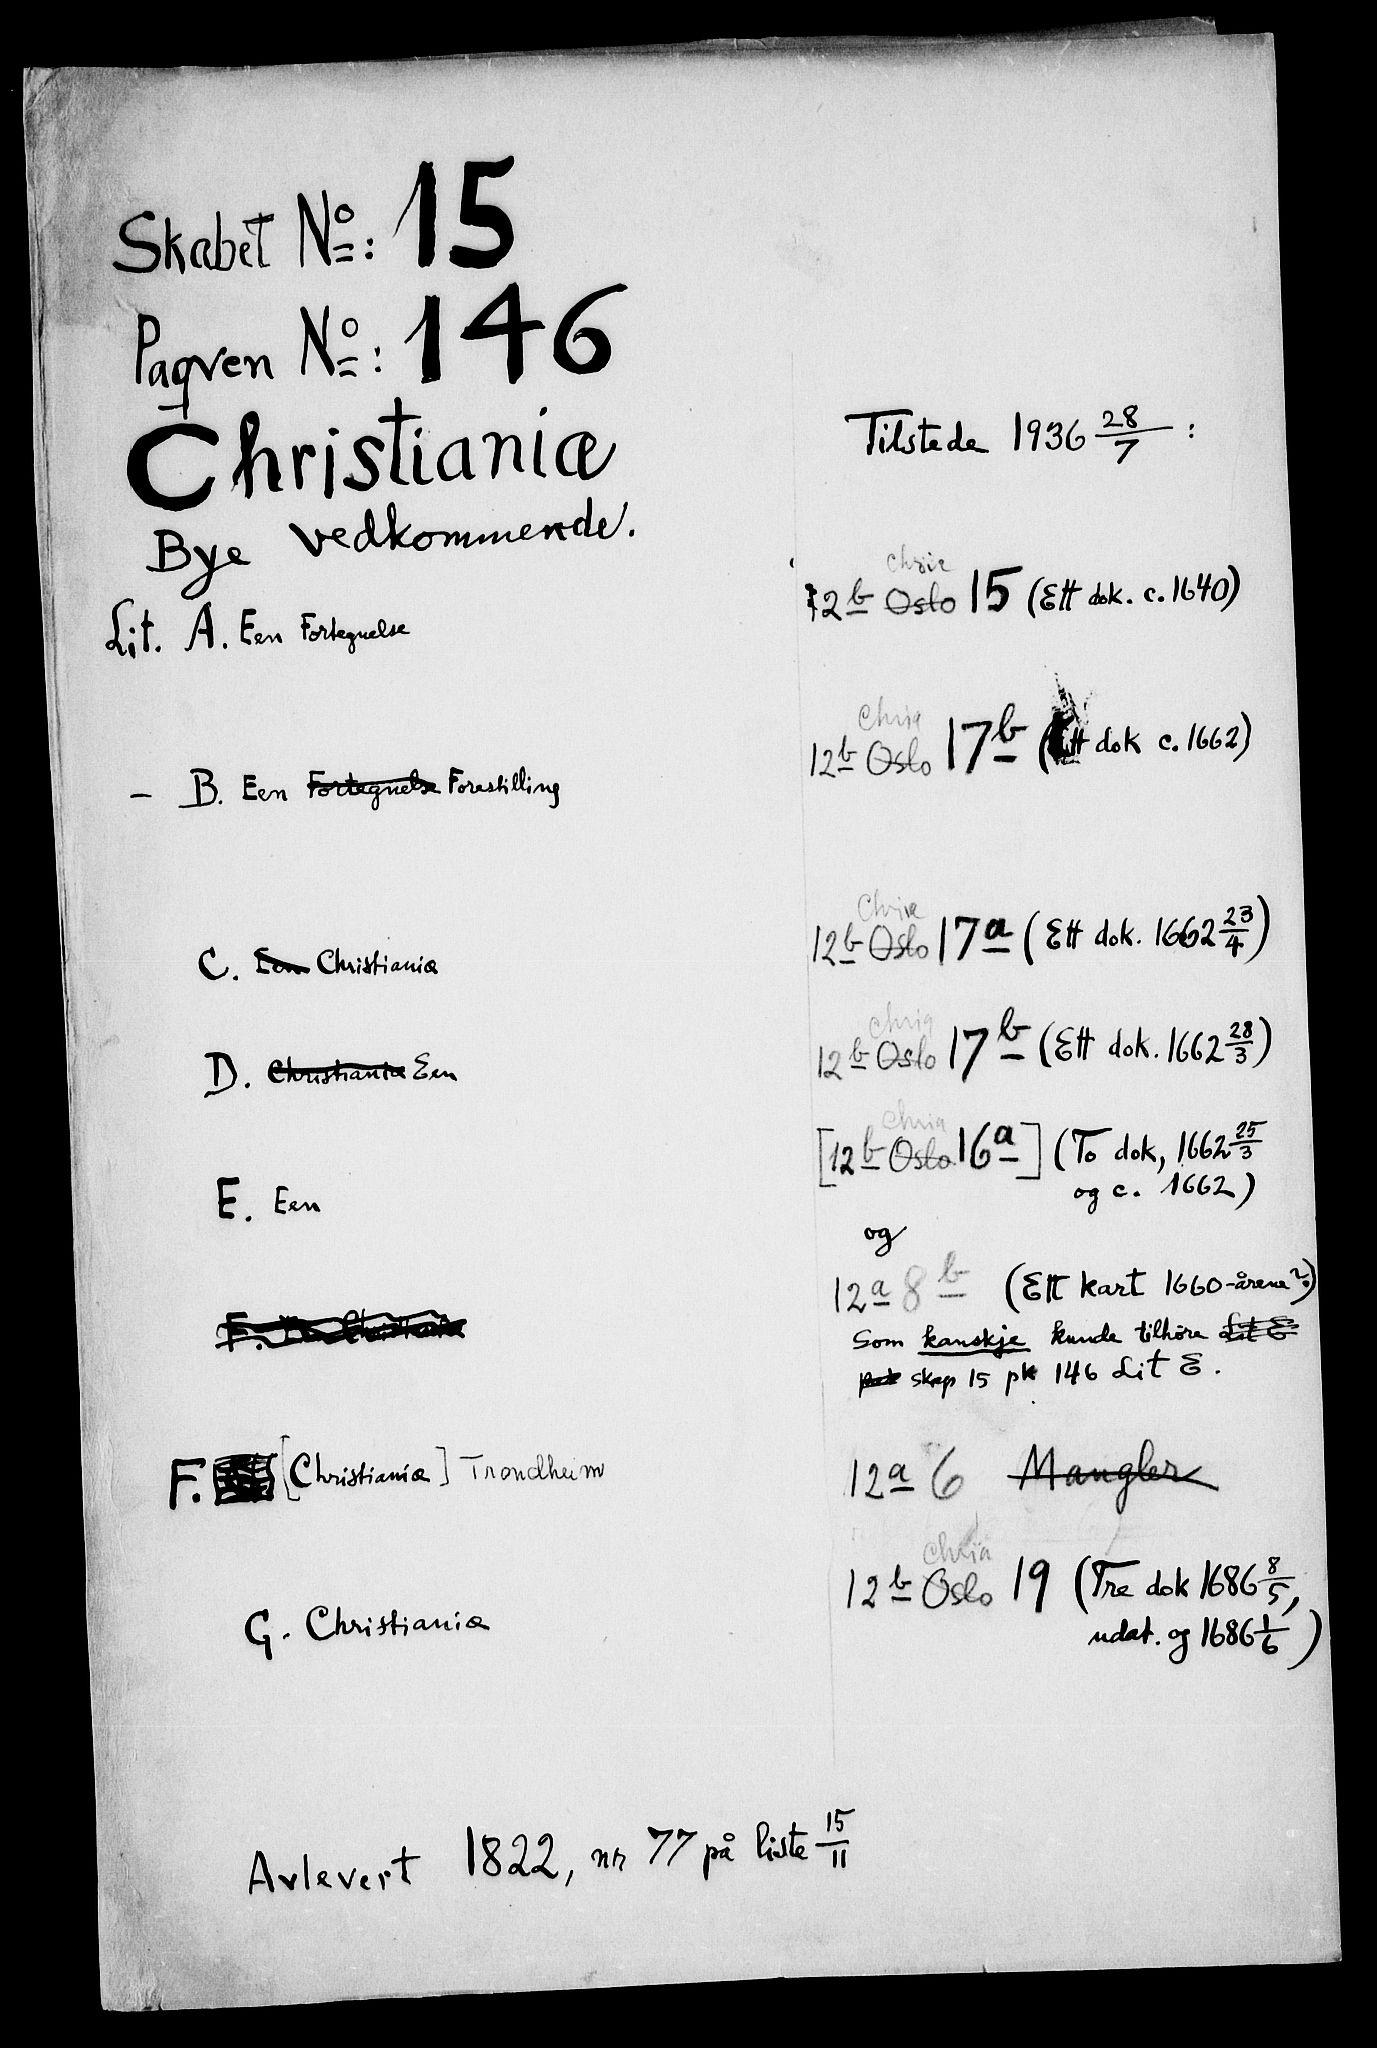 Skabet No: 15
Paqven No: 146
Christiania
Bye vedkommende.
Tilstede 1936 28/7 :
Lit. A. Een Fortegnelse
Chria
12b Oslo 15 (Ett dok. c. 1640)
- B. Een Fortegnelse Forestilling
Chria
12b Oslo 17b (Ett dok c. 1662)
C. Een Christiania
Chria
12b Oslo 17a (Ett dok. 1662 23/4)
D. Christiania Een
Chria
12b Oslo 17b (Ett dok. 1662 28/3)
E. Een
Chria
[12b Oslo 16a] (To dok, 1662 25/3
og c. 1662)
og
12a 8b (Ett kart 1660-årene?)
Som kanskje kunde tilhøre Lit E
pak skap 15 pk 146 Lit E.
F. Christiania
F. [Christiania] Trondheim
12a 6 Mangler
G. Christiania
Chria
12b Oslo 19 (Tre dok 1686 8/5,
udat. og 1686 1/6)
Avlevert 1822, nr 77 på liste 15/11